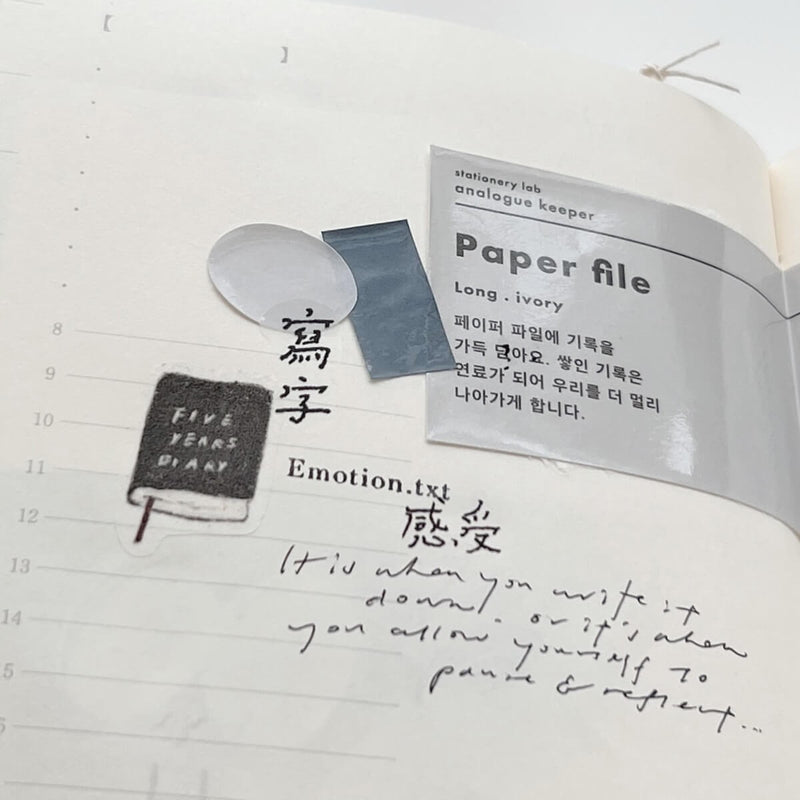 【
】
stationery lab
analogue keeper
Paper file
Long . ivory
페이퍼 파일에 기록을
가득 담아요. 쌓인 기록은
연료가 되어 우리를 더 멀리
나아가게 합니다.
寫
字
8
9
10
11
12
13
14
5
FIVE
YEARS
DIARY
Emotion.txt
感受
It is when you write it
down, or it's when
you allow yourself to
pause & reflect...